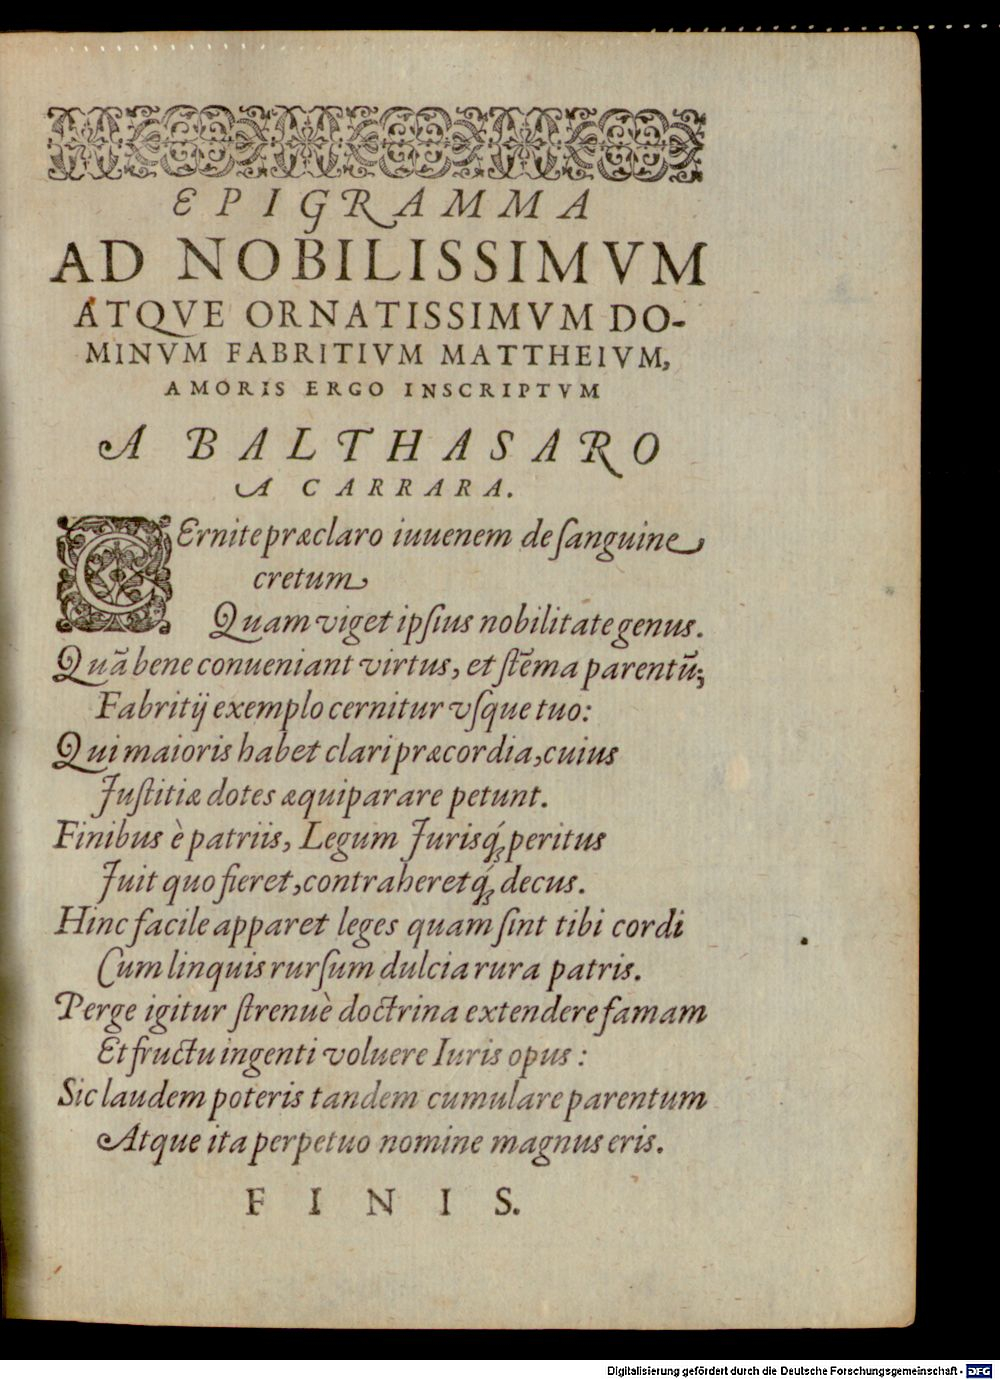 EPIGRAMMA
AD NOBILISSIMVM
ATQVE ORNATISSIMVM DO-
MINVM FABRITIVM MATTHEIVM,
AMORIS ERGO INSCRIPTVM
A BALTHASARO
A CARRARA.
CErnite præclaro iuuenem de ſanguine
cretum
Quam viget ipſius nobilitate genus.
Quā bene conueniant virtus, et ſtēma parentū;
Fabritij exemplo cernitur vſque tuo:
Qui maioris habet clari præcordia, cuius
Juſtitiæ dotes æquiparare petunt.
Finibus è patriis, Legum Jurisq́; peritus
Juit quo fieret, contraheretq́; decus.
Hinc facile apparet leges quam ſint tibi cordi
Cum linquis rurſum dulcia rura patris.
Perge igitur ſtrenuè doctrina extendere famam
Et fructu ingenti voluere Iuris opus :
Sic laudem poteris tandem cumulare parentum
Atque ita perpetuo nomine magnus eris.
FINIS.
Digitalisierung gefördert durch die Deutsche Forschungsgemeinschaft - DFG